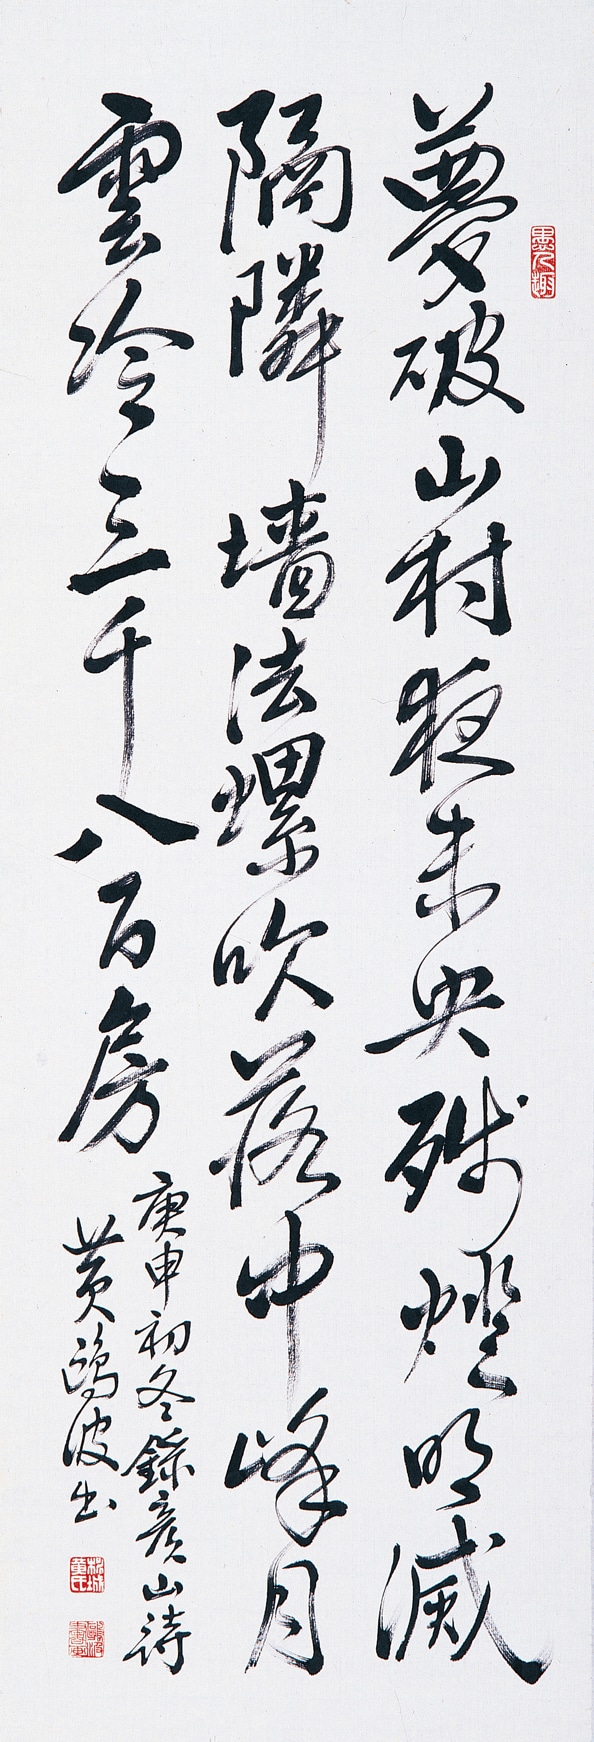 夢破山村夜未央殘燈明滅
隔隣墻法螺吹落中峰月
雲冷三千八百房
庚申初冬錄彥山詩
黃鷗波書